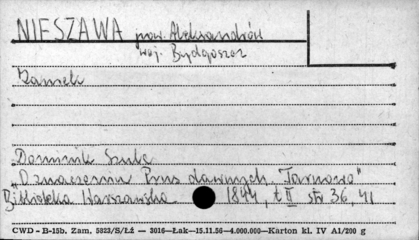 NIESZAWA pow. Aleksandrów
woj. Bydgoszcz
Zamek
Dominik Szulc
"O znaczeniu Prus dawnych, Tarnowo"
Biblioteka Warszawska 1844, t II str 36, 41
CWD - B-15b. Zam. 5823/S/Łż — 3016—Łak—15.11.56—4.000.000—Karton kl. IV A1/200 g